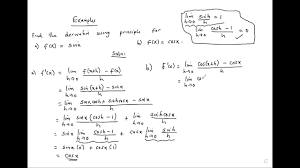 Examples
find the derivative using principle for
a) f(x) = sinx b) f(x) = cosx.
lim h→0 sinh/h = 1
lim h→0 cosh-1/h = 0
Soln:
a) f'(x) = lim h→0 f(x+h) - f(x)/h
= lim h→0 sin(x+h) - sinx/h
= lim h→0 sinxcosh + sinhcosx - sinx/h
= lim h→0 sinx(cosh-1)/h + cosxsinh/h
= sinx lim h→0 cosh-1/h + cosx lim h→0 sinh/h
= sinx(0) + cosx(1)
= cosx
b) f'(x) = lim h→0 cos(x+h) - cosx/h
= lim h→0